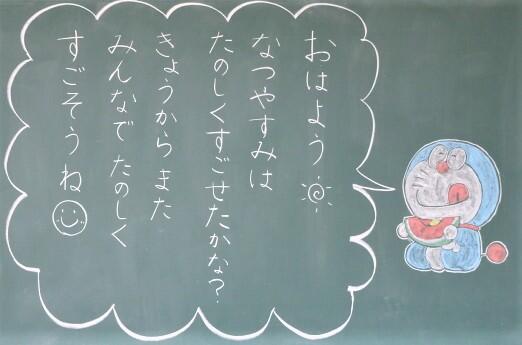 おはよう
なつやすみは
たのしくすごせたかな?
きょうからまた
みんなで たのしく
すごそうね